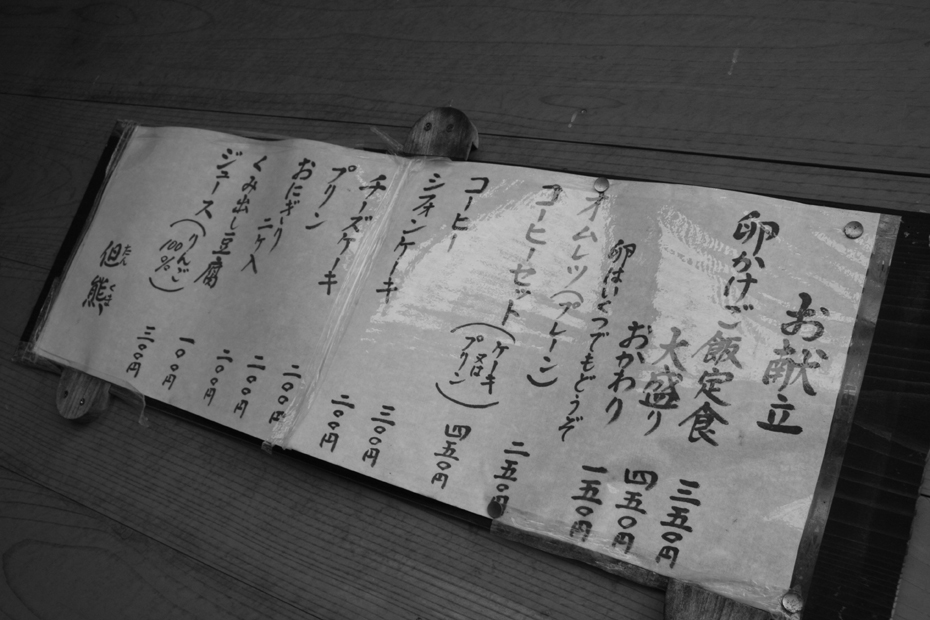 お献立
卵かけご飯定食 三五〇円
大盛り 四五〇円
おかわり 一五〇円
卵はいくつでもどうぞ
オムレツ(プレーン) 二五〇円
コーヒーセット(ケーキ又はプリン) 四五〇円
コーヒー 三〇〇円
シフォンケーキ 二〇〇円
チーズケーキ 二〇〇円
プリン 二〇〇円
おにぎり 二ケ入 二〇〇円
くみ出し豆腐 一〇〇円
ジュース(りんご100%) 三〇〇円
但熊
たんくま